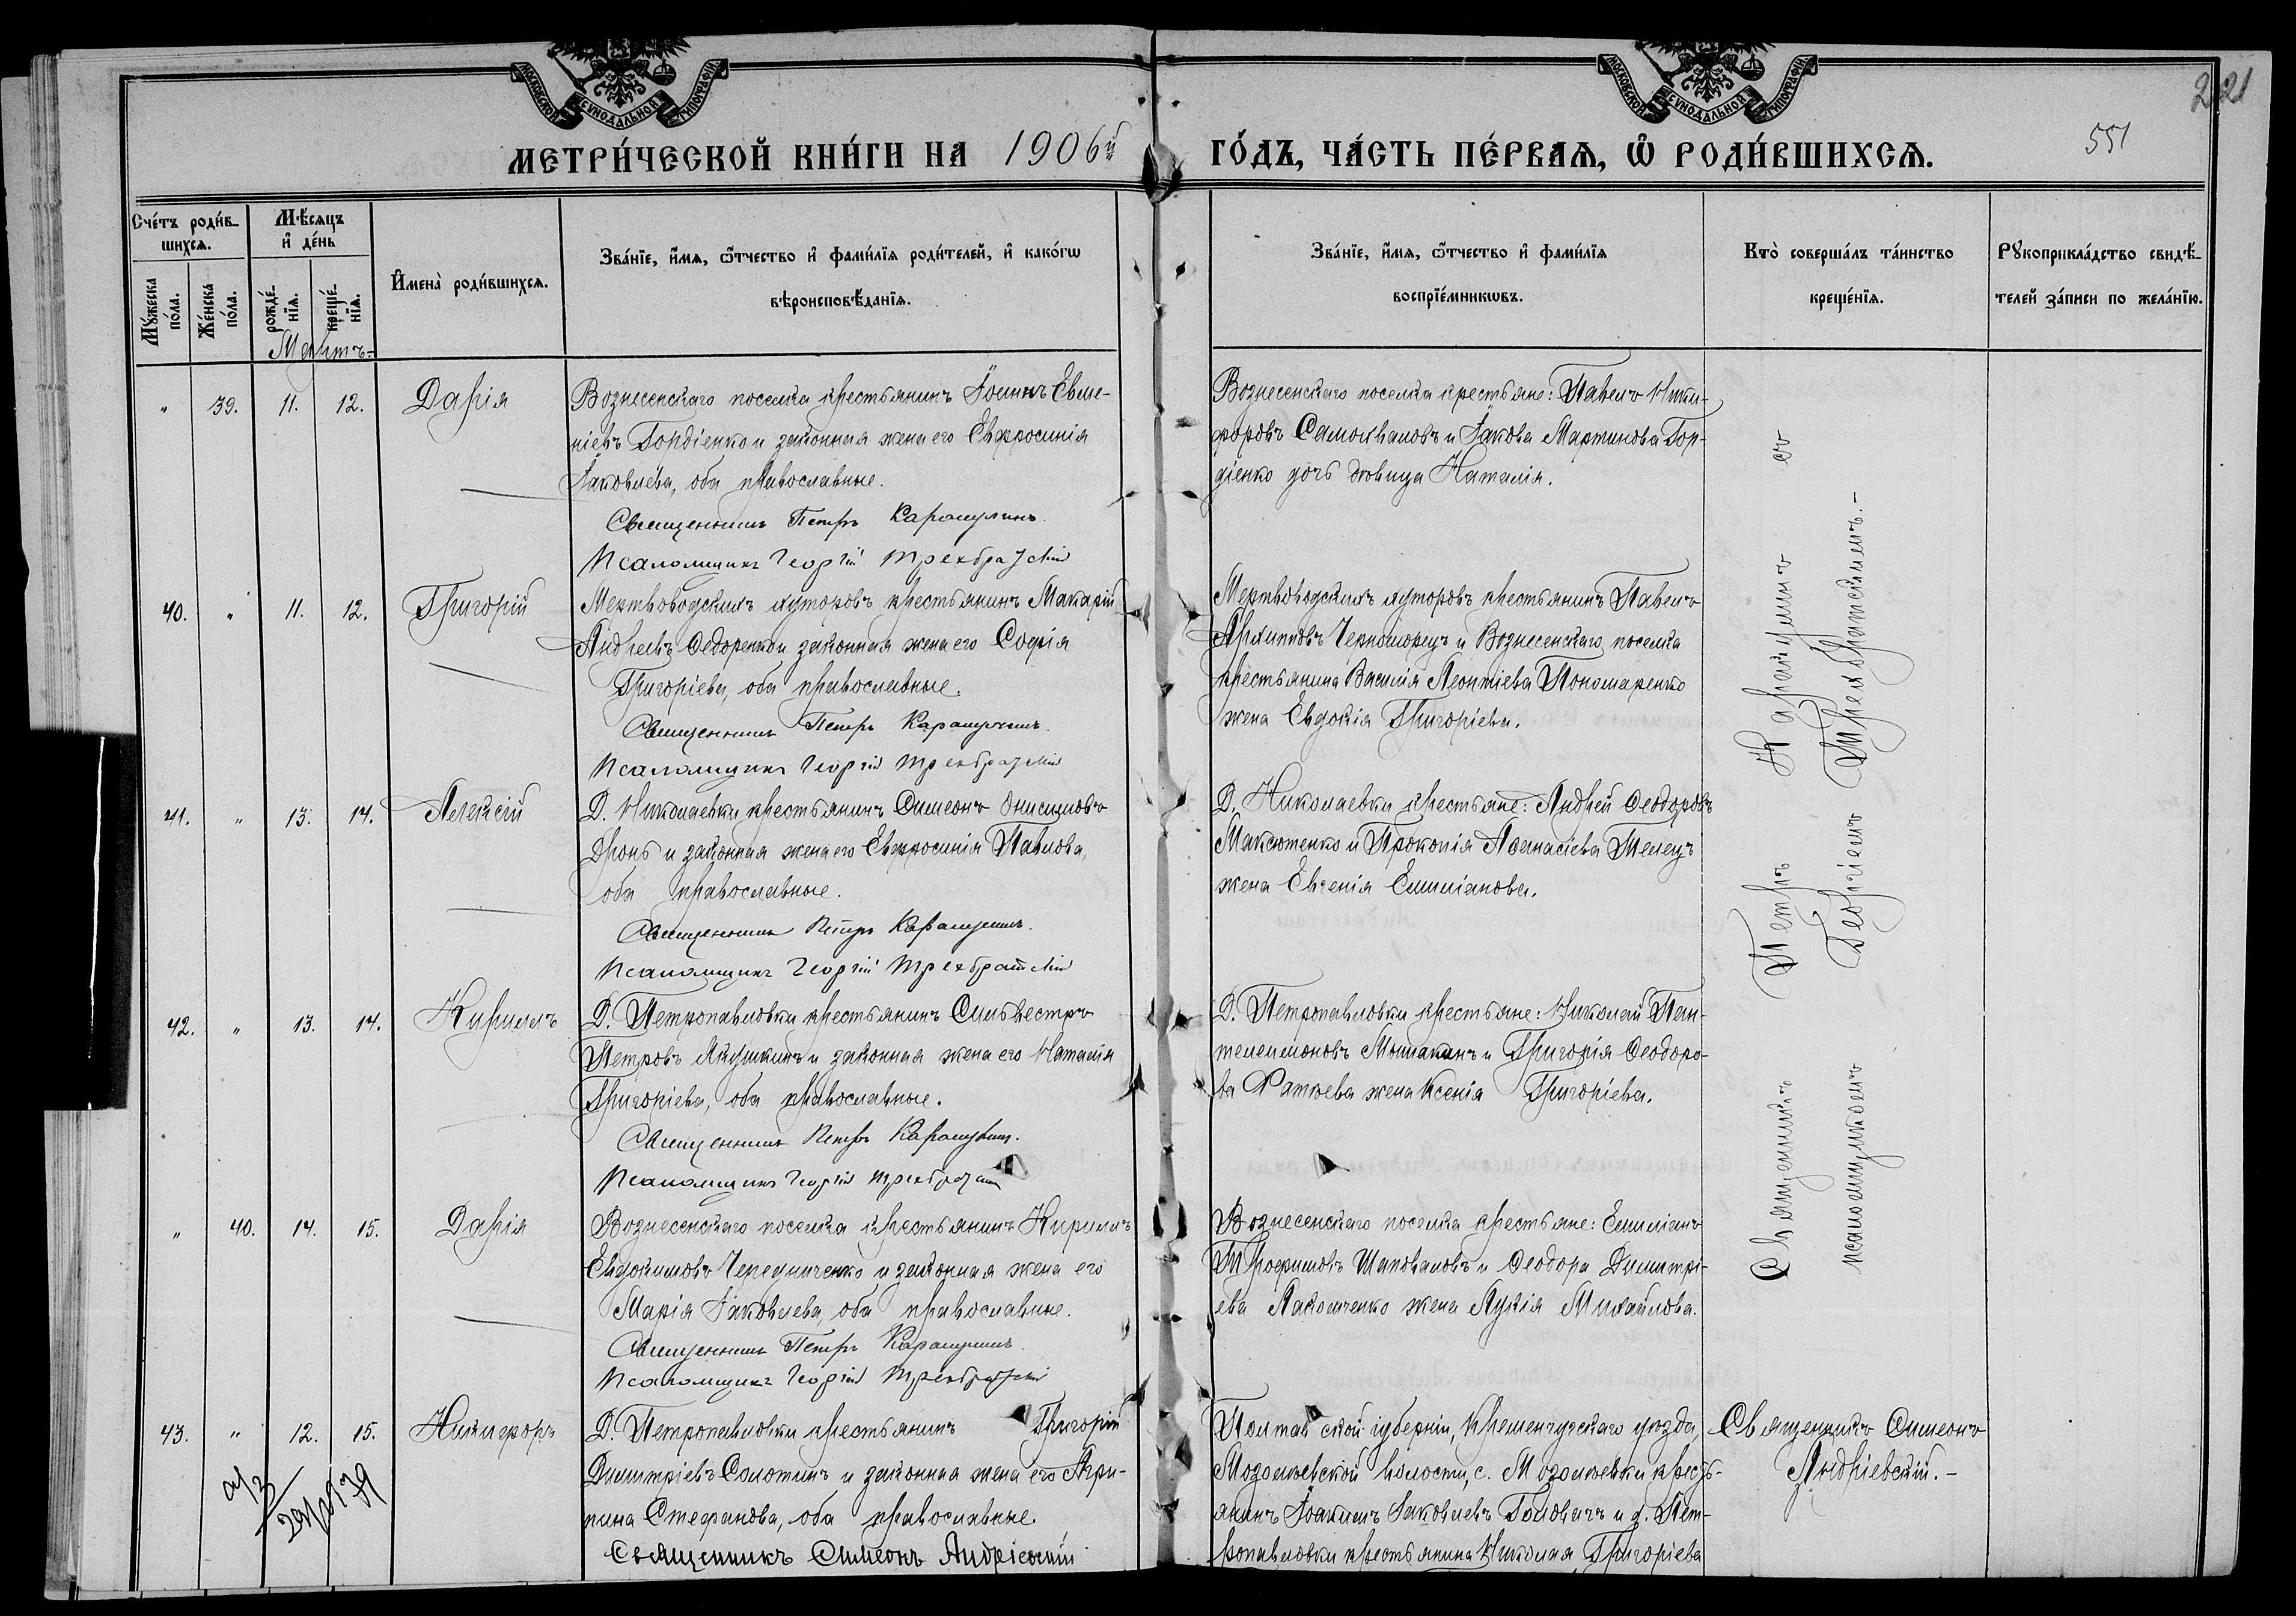 МОСКОВСКОЙ СѴНОДАЛЬНОЙ ТИПОГРАФІИ
МОСКОВСКОЙ СѴНОДАЛЬНОЙ ТИПОГРАФІИ
221
551
МЕТРИ́ЧЕСКОЙ КНИ́ГИ НА 1906й ГО́ДЪ, ЧА́СТЬ ПЕ́РВАѦ, Ѡ҆ РОДИ́ВШИХСѦ.
Сче́тъ роди́в-
шихсѧ.
Мꙋ́жеска
по́ла.
Же́нска
по́ла.
Мѣ́сѧцъ
и҆ де́нь
рожде́-
нїѧ.
креще́-
нїѧ.
И҆мена̀ роди́вшихсѧ.
Зва́нїе, и҆́мѧ, ѻ҆́тчество и҆ фами́лїѧ роди́телей, и҆ како́гѡ
вѣроисповѣ́данїѧ.
Зва́нїе, и҆́мѧ, ѻ҆́тчество и҆ фами́лїѧ
воспрїе́мникѡвъ.
Кто̀ соверша́лъ та́инство
креще́нїѧ.
Рꙋкоприкла́дство свидѣ́-
телей за́писи по жела́нїю.
Мартъ-
" 39. 11. 12. Дарія
Вознесенскаго поселка крестьянинъ Іоаннъ Евме-
ніевъ Гордіенко и законная жена его Евфросинія
Іаковлева, оба православные.
Священникъ Петръ Карашулинъ.
Псаломщикъ Георгій Трехбратскій
Вознесенскаго поселка крестьяне: Павелъ Ники-
форовъ Самохваловъ и Іакова Мартинова Гор-
діенко дочь дѣвица Наталія.
40. " 11. 12. Григорій
Мертвоводскихъ хуторовъ крестьянинъ Макарій
Андреевъ Ѳедоренко и законная жена его Софія
Григоріева, оба православные.
Священникъ Петръ Карашулинъ.
Псаломщикъ Георгій Трехбратскій
Мертвоводскихъ хуторовъ крестьянинъ Павелъ
Архиповъ Черноморецъ и Вознесенскаго поселка
крестьянина Василія Леонтіева Пономаренко
жена Евдокія Григоріева.
41. " 13. 14. Алексій
Д. Николаевки крестьянинъ Симеонъ Онисимовъ
Дронь и законная жена его Евфросинія Павлова,
оба православные.
Священникъ Петръ Карашулинъ.
Псаломщикъ Георгій Трехбратскій
Д. Николаевки крестьяне: Андрей Ѳеодоровъ
Максютенко и Прокопія Аѳанасіева Телецъ
жена Евгенія Емиліанова.
42. " 13. 14. Кириллъ
Д. Петропавловки крестьянинъ Сильвестръ
Петровъ Якушкинъ и законная жена его Наталія
Григоріева, оба православные.
Священникъ Петръ Карашулинъ.
Псаломщикъ Георгій
Д. Петропавловки крестьяне: Николай Пан-
телеимоновъ и Григорія Ѳеодоро-
ва жена Ксенія Григоріева.
" 40. 14. 15. Дарія
Вознесенскаго поселка крестьянинъ Кириллъ
Евдокимовъ Чередниченко и законная жена его
Марія Іаковлева, оба православные.
Священникъ Петръ Карашулинъ.
Псаломщикъ Георгій Трехбратскій
Вознесенскаго поселка крестьяне: Емиліанъ
Трофимовъ Шаповаловъ и Ѳеодора Димитрі-
ева жена Лукія Михайлова.
Священникъ Петръ Карашулинъ съ
псаломщикомъ Георгіемъ Трехбратскимъ.-
43. " 12. 15. Никифоръ
Д. Петропавловки крестьянинъ Григорій
Димитріевъ Солотинъ и законная жена его Агри-
пина Стефанова, оба православные.
Священникъ Симеонъ Андріевскій
Полтавской губерніи, Кременчугскаго уѣзда,
Мозолѣевской волости, с. Мозолѣевки кресть-
янинъ Іоакимъ Іаковлевъ и д. Пет-
ропавловки крестьянина Николая Григоріева
Священникъ Симеонъ
Андріевскій.-